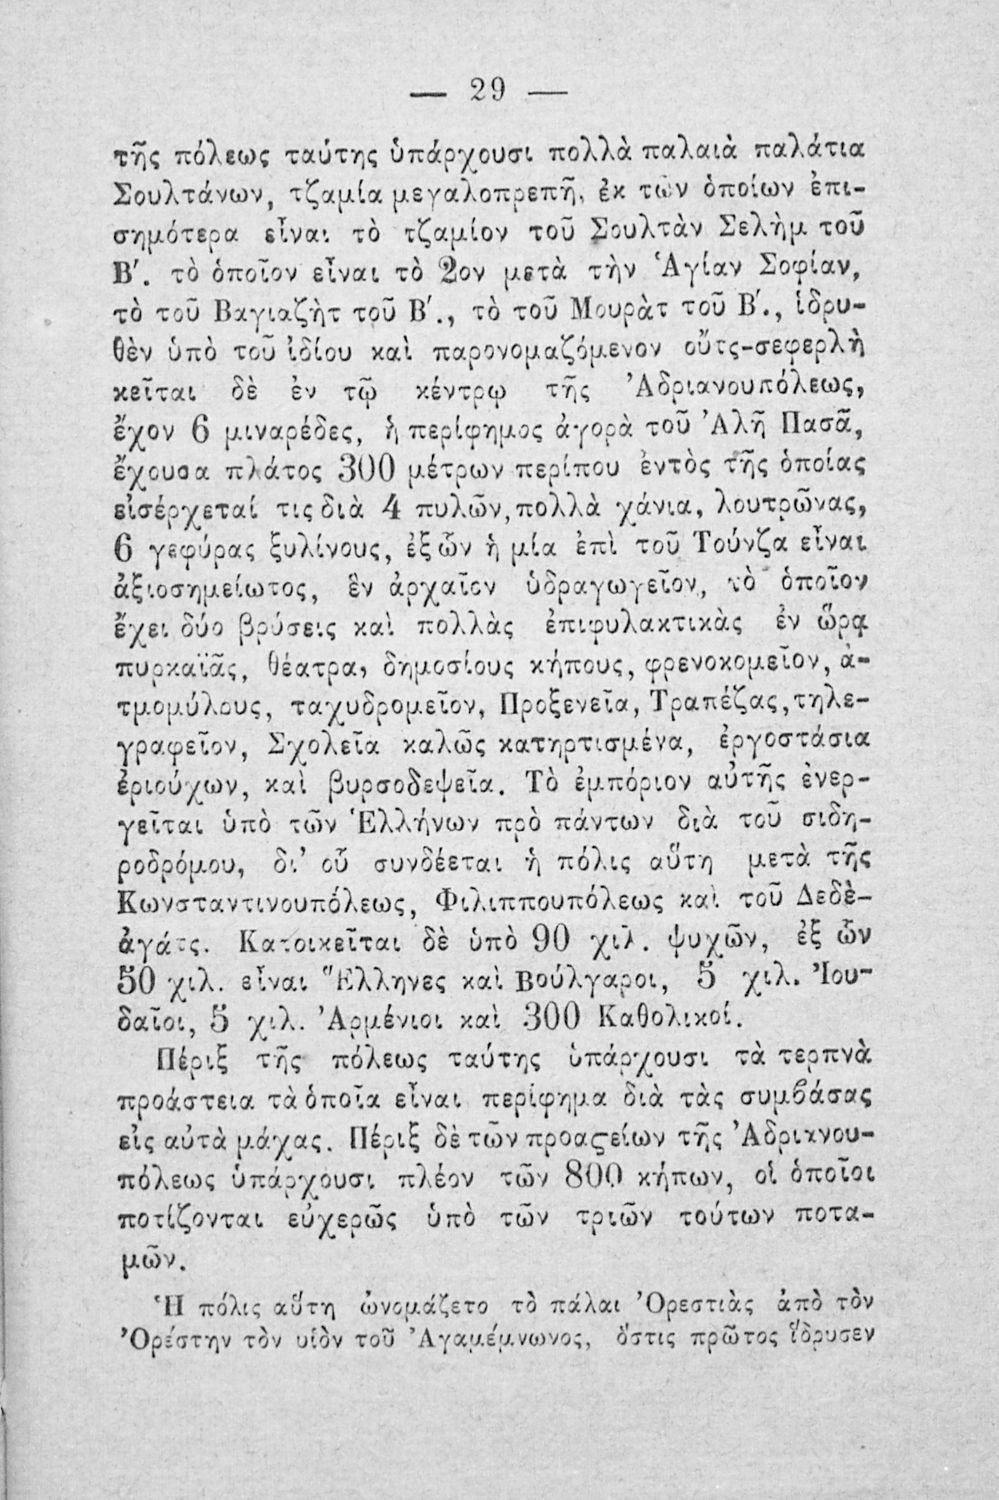 — 29 —
τῆς πόλεως ταύτης ὑπάρχουσι πολλὰ παλαιὰ παλάτια
Σουλτάνων, τζαμία μεγαλοπρεπῆ, ἐκ τῶν ὁποίων ἐπι-
σημότερα εἶναι τὸ τζαμίον τοῦ Σουλτὰν Σελὴμ τοῦ
Β΄. τὸ ὁποῖον εἶναι τὸ 2ον μετὰ τὴν Ἁγίαν Σοφίαν,
τὸ τοῦ Βαγιαζὴτ τοῦ Β΄., τὸ τοῦ Μουρὰτ τοῦ Β΄., ἱδρυ-
θὲν ὑπὸ τοῦ ἰδίου καὶ παρονομαζόμενον οὔτς-σεφερλὴ
κεῖται δὲ ἐν τῷ κέντρῳ τῆς Ἀδριανουπόλεως,
ἔχον 6 μιναρέδες, ἡ περίφημος ἀγορὰ τοῦ Ἀλῆ Πασᾶ,
ἔχουσα πλάτος 300 μέτρων περίπου ἐντὸς τῆς ὁποίας
εἰσέρχεταί τις διὰ 4 πυλῶν, πολλὰ χάνια, λουτρῶνας,
6 γεφύρας ξυλίνους, ἐξ ὧν ἡ μία ἐπὶ τοῦ Τούνζα εἶναι
ἀξιοσημείωτος, ἓν ἀρχαῖον ὑδραγωγεῖον, τὸ ὁποῖον
ἔχει δύο βρύσεις καὶ πολλὰς ἐπιφυλακτικὰς ἐν ὥρᾳ
πυρκαϊᾶς, θέατρα, δημοσίους κήπους, φρενοκομεῖον, ἀ-
τμομύλους, ταχυδρομεῖον, Προξενεῖα, Τραπέζας, τηλε-
γραφεῖον, Σχολεῖα καλῶς κατηρτισμένα, ἐργοστάσια
ἐριούχων, καὶ βυρσοδεψεῖα. Τὸ ἐμπόριον αὐτῆς ἐνερ-
γεῖται ὑπὸ τῶν Ἑλλήνων πρὸ πάντων διὰ τοῦ σιδη-
ροδρόμου, δι' οὗ συνδέεται ἡ πόλις αὕτη μετὰ τῆς
Κωνσταντινουπόλεως, Φιλιππουπόλεως καὶ τοῦ Δεδὲ-
ἀγάτς. Κατοικεῖται δὲ ὑπὸ 90 χιλ. ψυχῶν, ἐξ ὧν
50 χιλ. εἶναι Ἕλληνες καὶ Βούλγαροι, 5 χιλ. Ἰου-
δαῖοι, 5 χιλ. Ἀρμένιοι καὶ 300 Καθολικοί.
Πέριξ τῆς πόλεως ταύτης ὑπάρχουσι τὰ τερπνὰ
προάστεια τὰ ὁποῖα εἶναι περίφημα διὰ τὰς συμβάσας
εἰς αὐτὰ μάχας. Πέριξ δὲ τῶν προαστείων τῆς Ἀδριανου-
πόλεως ὑπάρχουσι πλέον τῶν 800 κήπων, οἱ ὁποῖοι
ποτίζονται εὐχερῶς ὑπὸ τῶν τριῶν τούτων ποτα-
μῶν.
Ἡ πόλις αὕτη ὠνομάζετο τὸ πάλαι Ὀρεστιὰς ἀπὸ τὸν
Ὀρέστην τὸν υἱὸν τοῦ Ἀγαμέμνωνος, ὅστις πρῶτος ἵδρυσεν